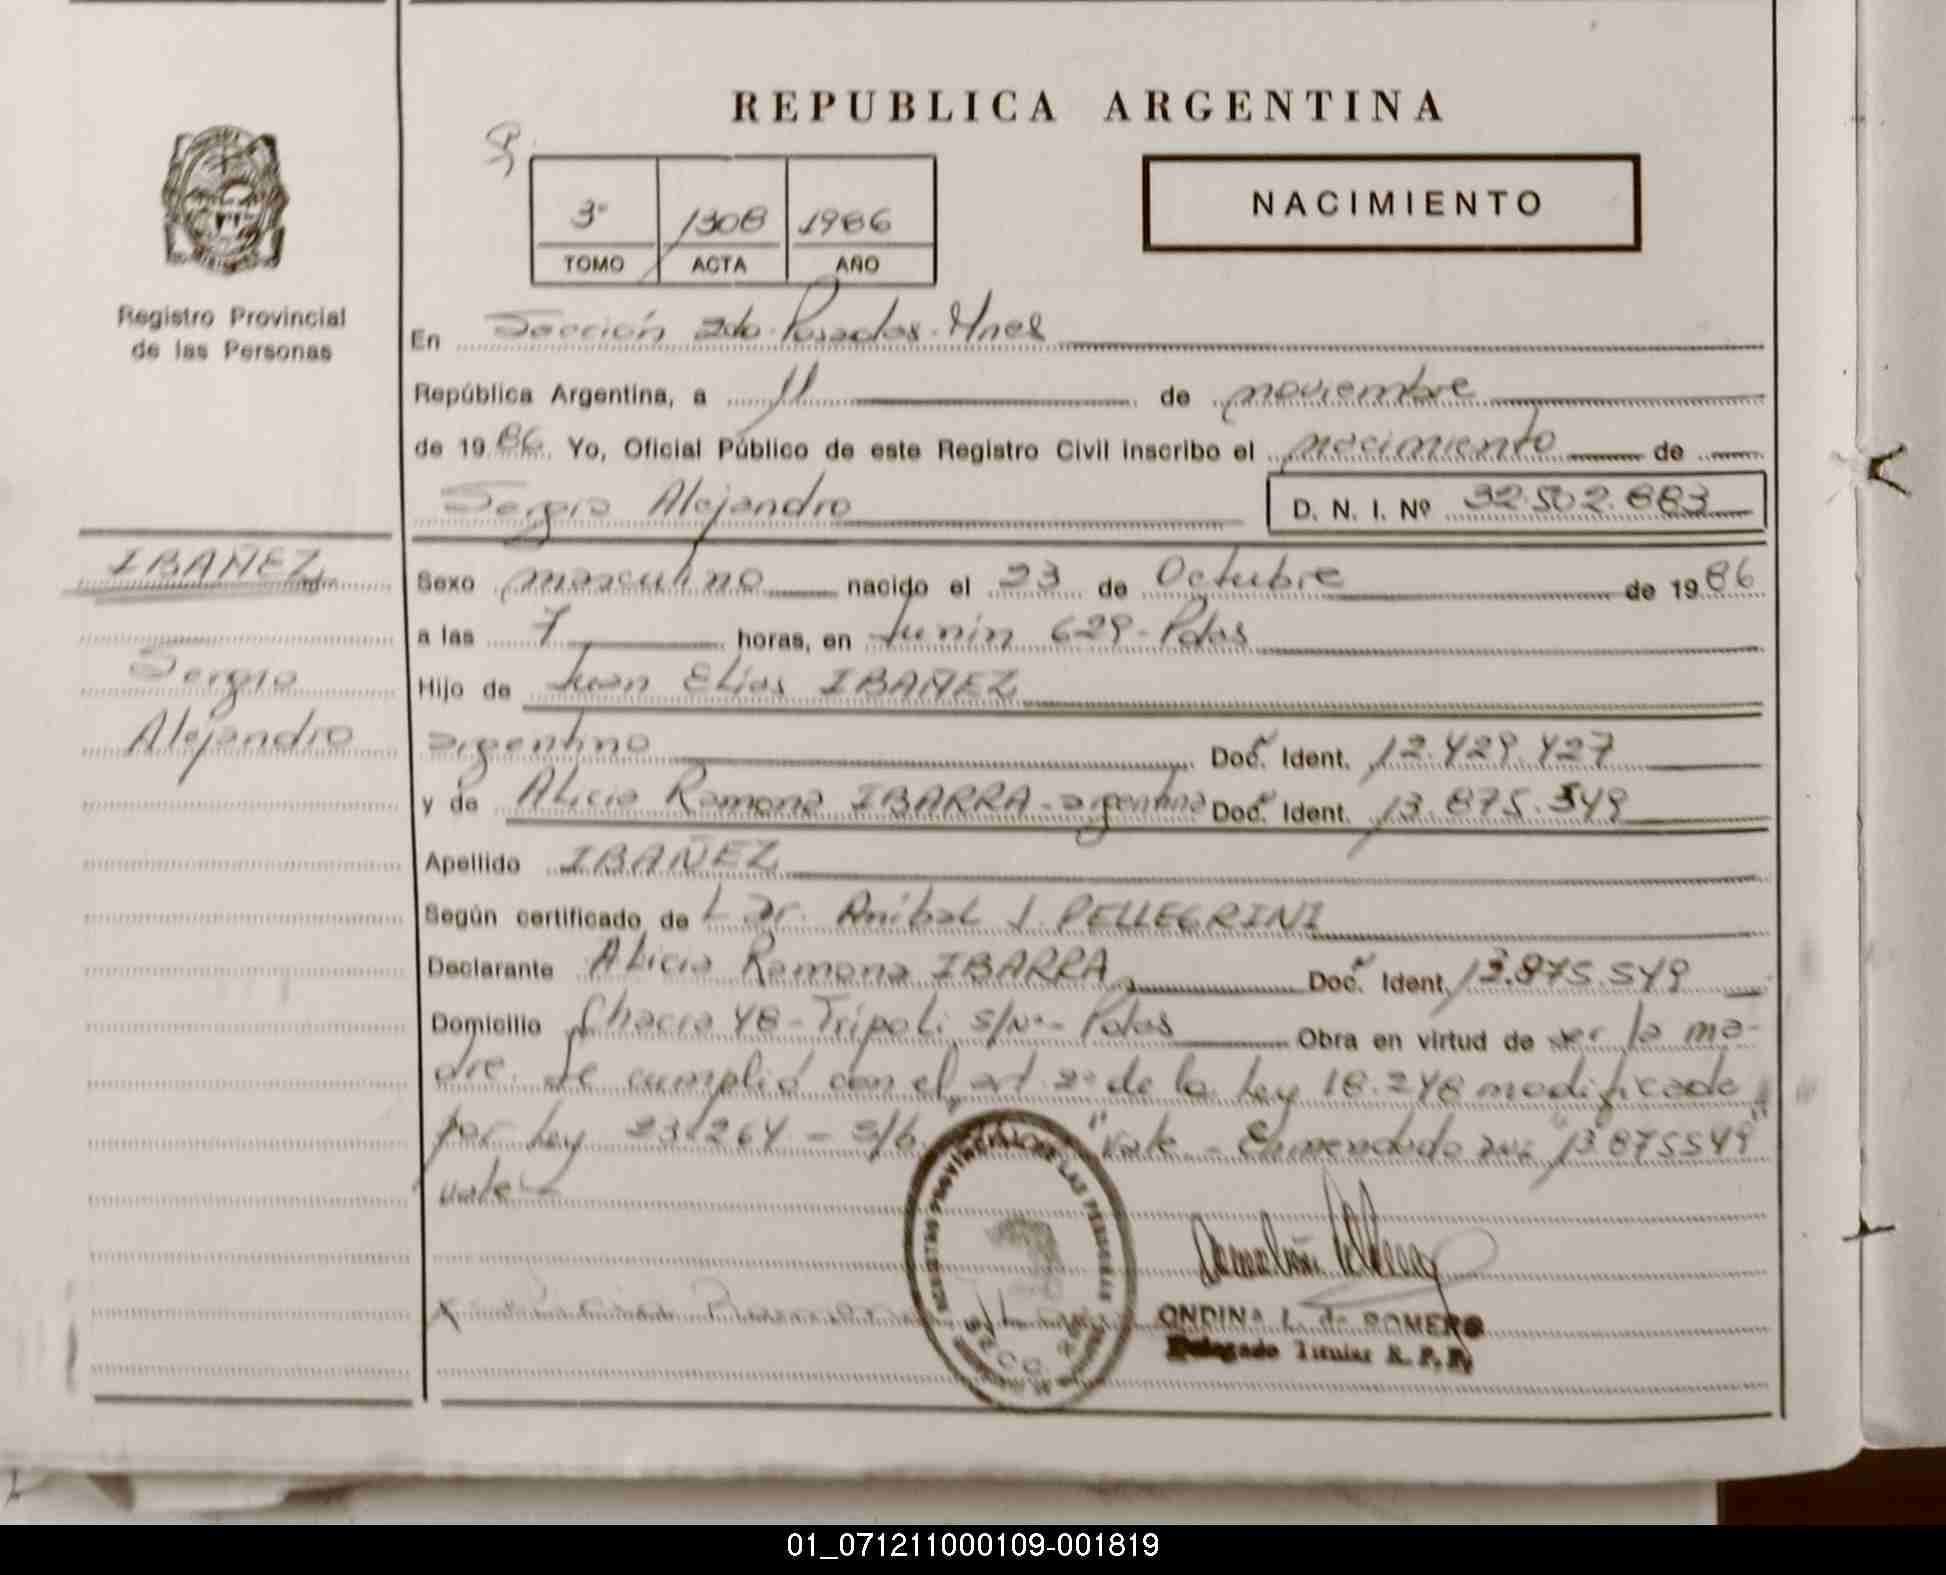 REPUBLICA ARGENTINA
NACIMIENTO
3º 1308 1986
TOMO ACTA AÑO
Registro Provincial
de las Personas
En Sección 2da. Posadas. Mnes
República Argentina, a 11 de noviembre
de 1986. Yo, Oficial Público de este Registro Civil inscribo el nacimiento de
Sergio Alejandro D. N. I. Nº 32.502.883
IBAÑEZ
Sergio
Alejandro
Sexo masculino nacido el 23 de Octubre de 1986
a las 7 horas, en Junín 629-Pdas
Hijo de Juan Elias IBAÑEZ
argentino Doc. Ident. 12.429.427
y de Alicia Ramona IBARRA-argentina Doc. Ident. 13.875.549
Apellido IBAÑEZ
Según certificado de Dr. Anibal J. PELLEGRINI
Declarante Alicia Ramona IBARRA Doc. Ident. 13.875.549
Domicilio Chacra 48-Tripoli s/Nº-Pdas Obra en virtud de ser la ma-
dre. Se cumplió con el art. 2º de la Ley 18.248 modificada
por Ley 23.264 - S/b. "Vale - Enmendado "13.875549"
vale-
REGISTRO PROVINCIAL DE LAS PERSONAS
SECC. 2a
ONDINA L. de ROMERO
Delegado Titular R. P. P.
01_071211000109-001819